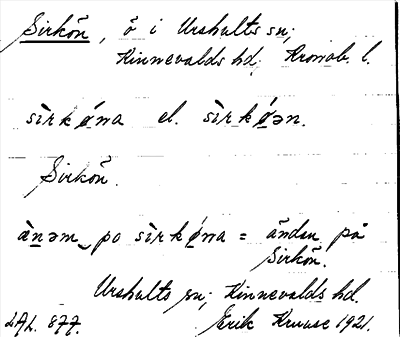 Sirkön, ö i Urshults sn;
Kinnevalds hd; Kronob. l.
sìrkǿna el. sìrkǿən.
Sirkön.
ànəm‿po sìrkǿna = änden på
Sirkön.
Urshults sn; Kinnevalds hd.
LAL. 877. Erik Kruuse 1921.